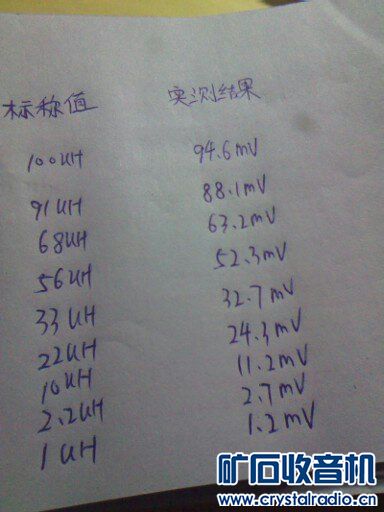 标称值 实测结果
100uH 94.6mV
91uH 88.1mV
68uH 63.2mV
56uH 52.3mV
33uH 32.7mV
22uH 24.3mV
10uH 11.2mV
2.2uH 2.7mV
1uH 1.2mV
矿石收音机
www.crystalradio.cn